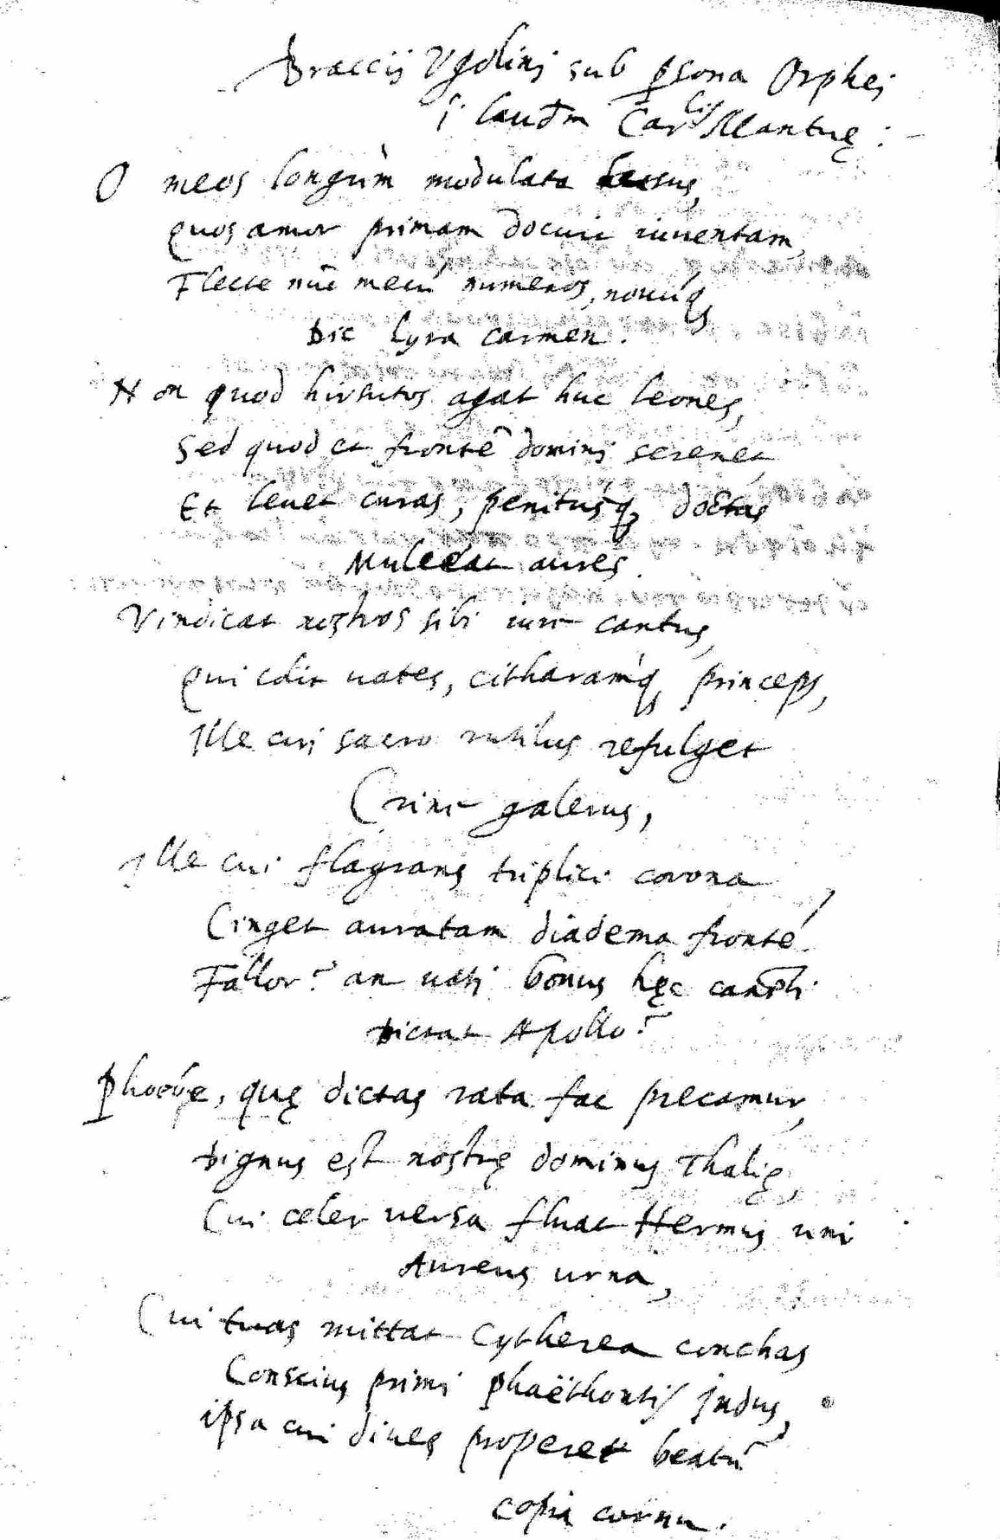 Braccij Vgolinj sub p̱sona Orphej
ĩ laudẽm Carlis Mantuę :
O meos longùm modulata lussus,
Quos amor primam docuit iuuentam,
Flecte nũc mecũ numeros, nouũq́;
Dic lyra carmen.
Non quod hirsutos agat huc leones,
Sed quod et frontẽ dominj serenet
Et leuet curas, penitusq́; doctas
Mulceat aures.
Vindicat nostros sibi iure cantus,
Qui colit uates, citharamq́; princeps,
Ille cuj sacro rutilus refulget
Crine galerus,
Ille cui flagrans triplici corona
Cinget auratam diadema frontẽ
Fallor? an uatj bonus hęc canẽti
Dictat Apollo?
Phoebe, quę dictas rata fac precamur,
Dignus est nostrę dominus Thalię,
Cui celer uersa fluat Hermus uni
Aureus urna,
Cui tuas mittat Cytherea conchas
Conscius primi phaëthontis Indus,
ipsa cui diues properet beatũ
copia cornu.